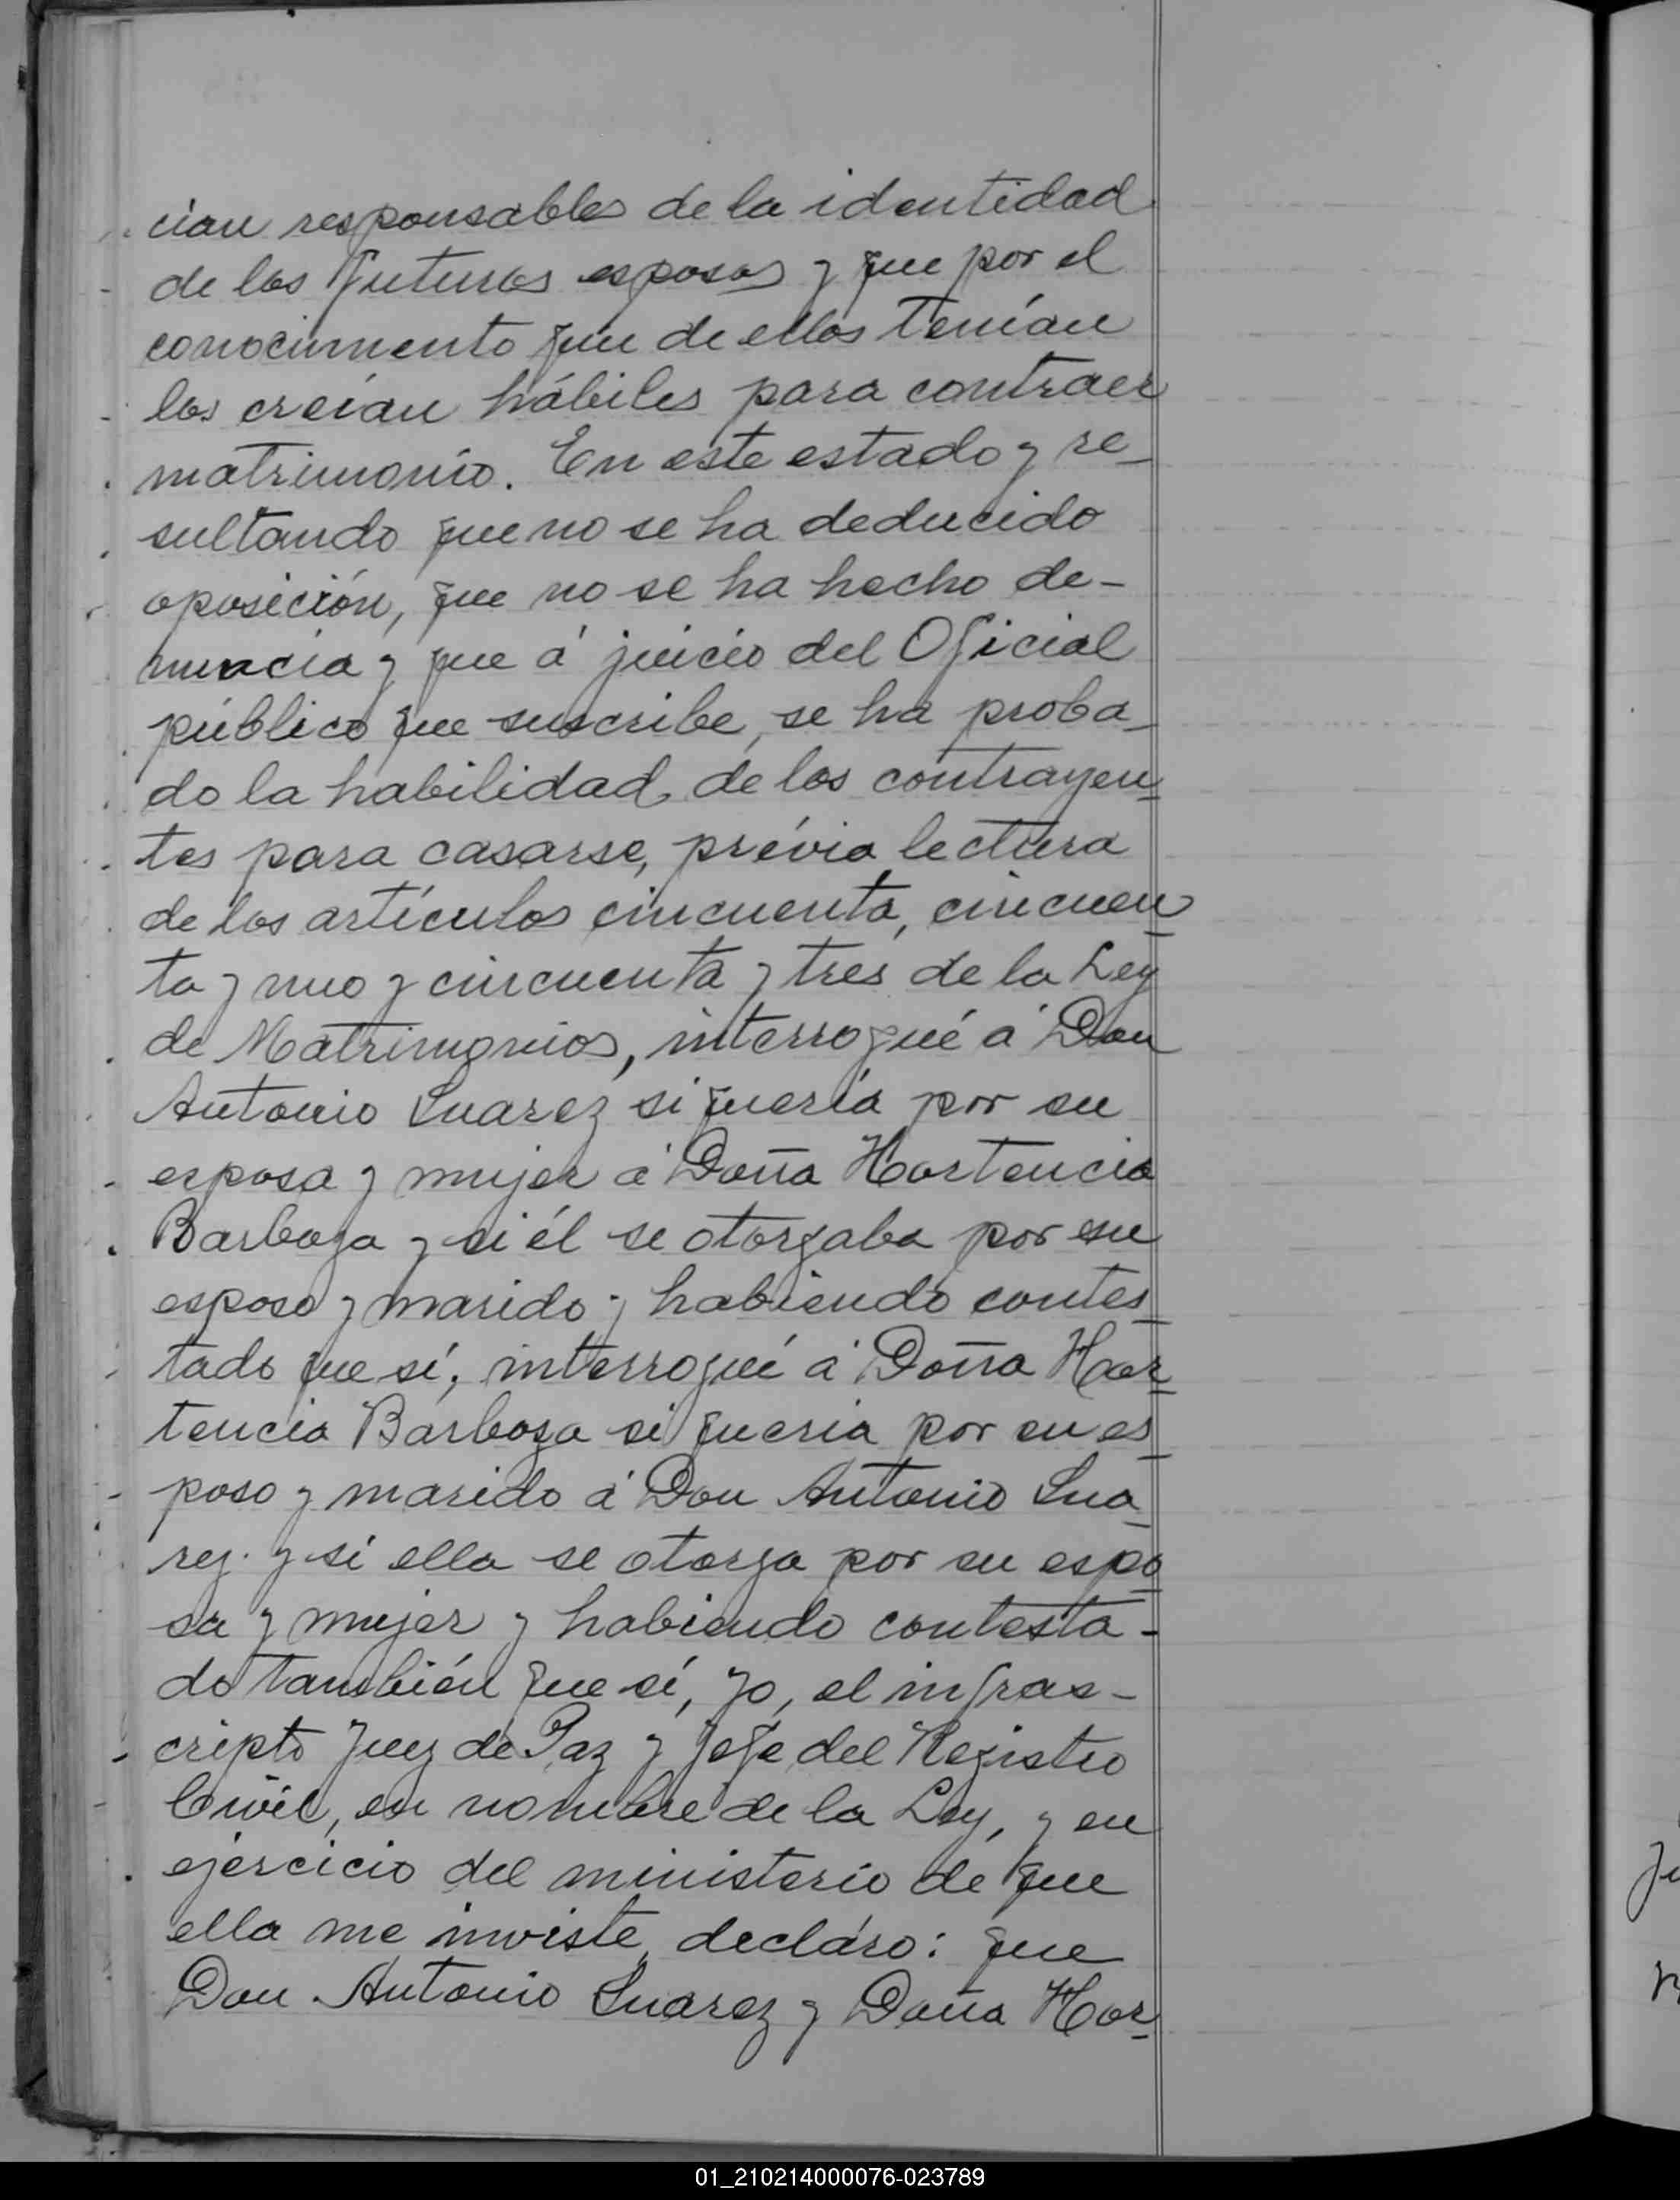 cian responsables de la identidad
de los futuros esposos y que por el
conocimiento que de ellos tenían
los creían hábiles para contraer
matrimonio. En este estado y re-
sultando que no se ha deducido
oposición, que no se ha hecho de-
nuncia y que á juicio del Oficial
público que suscribe, se ha proba-
do la habilidad de los contrayen-
tes para casarse, prévia lectura
de los artículos cincuenta, cincuen-
ta y uno y cincuenta y tres de la Ley
de Matrimonios, interrogué á Don
Antonio Suarez si quería por su
esposa y mujer á Doña Hortencia
Barboza y si él se otorgaba por su
esposo y marido y habiendo contes-
tado que sí, interrogué á Doña Hor-
tencia Barboza si quería por su es-
poso y marido á Don Antonio Sua-
rez y si ella se otorga por su espo-
sa y mujer y habiendo contesta-
do también que sí, yo, el infras-
cripto Juez de Paz y Jefe del Registro
Civil, en nombre de la Ley, y en
ejercicio del ministerio de que
ella me inviste, decláro: que
Don Antonio Suarez y Doña Hor-
01_210214000076-023789